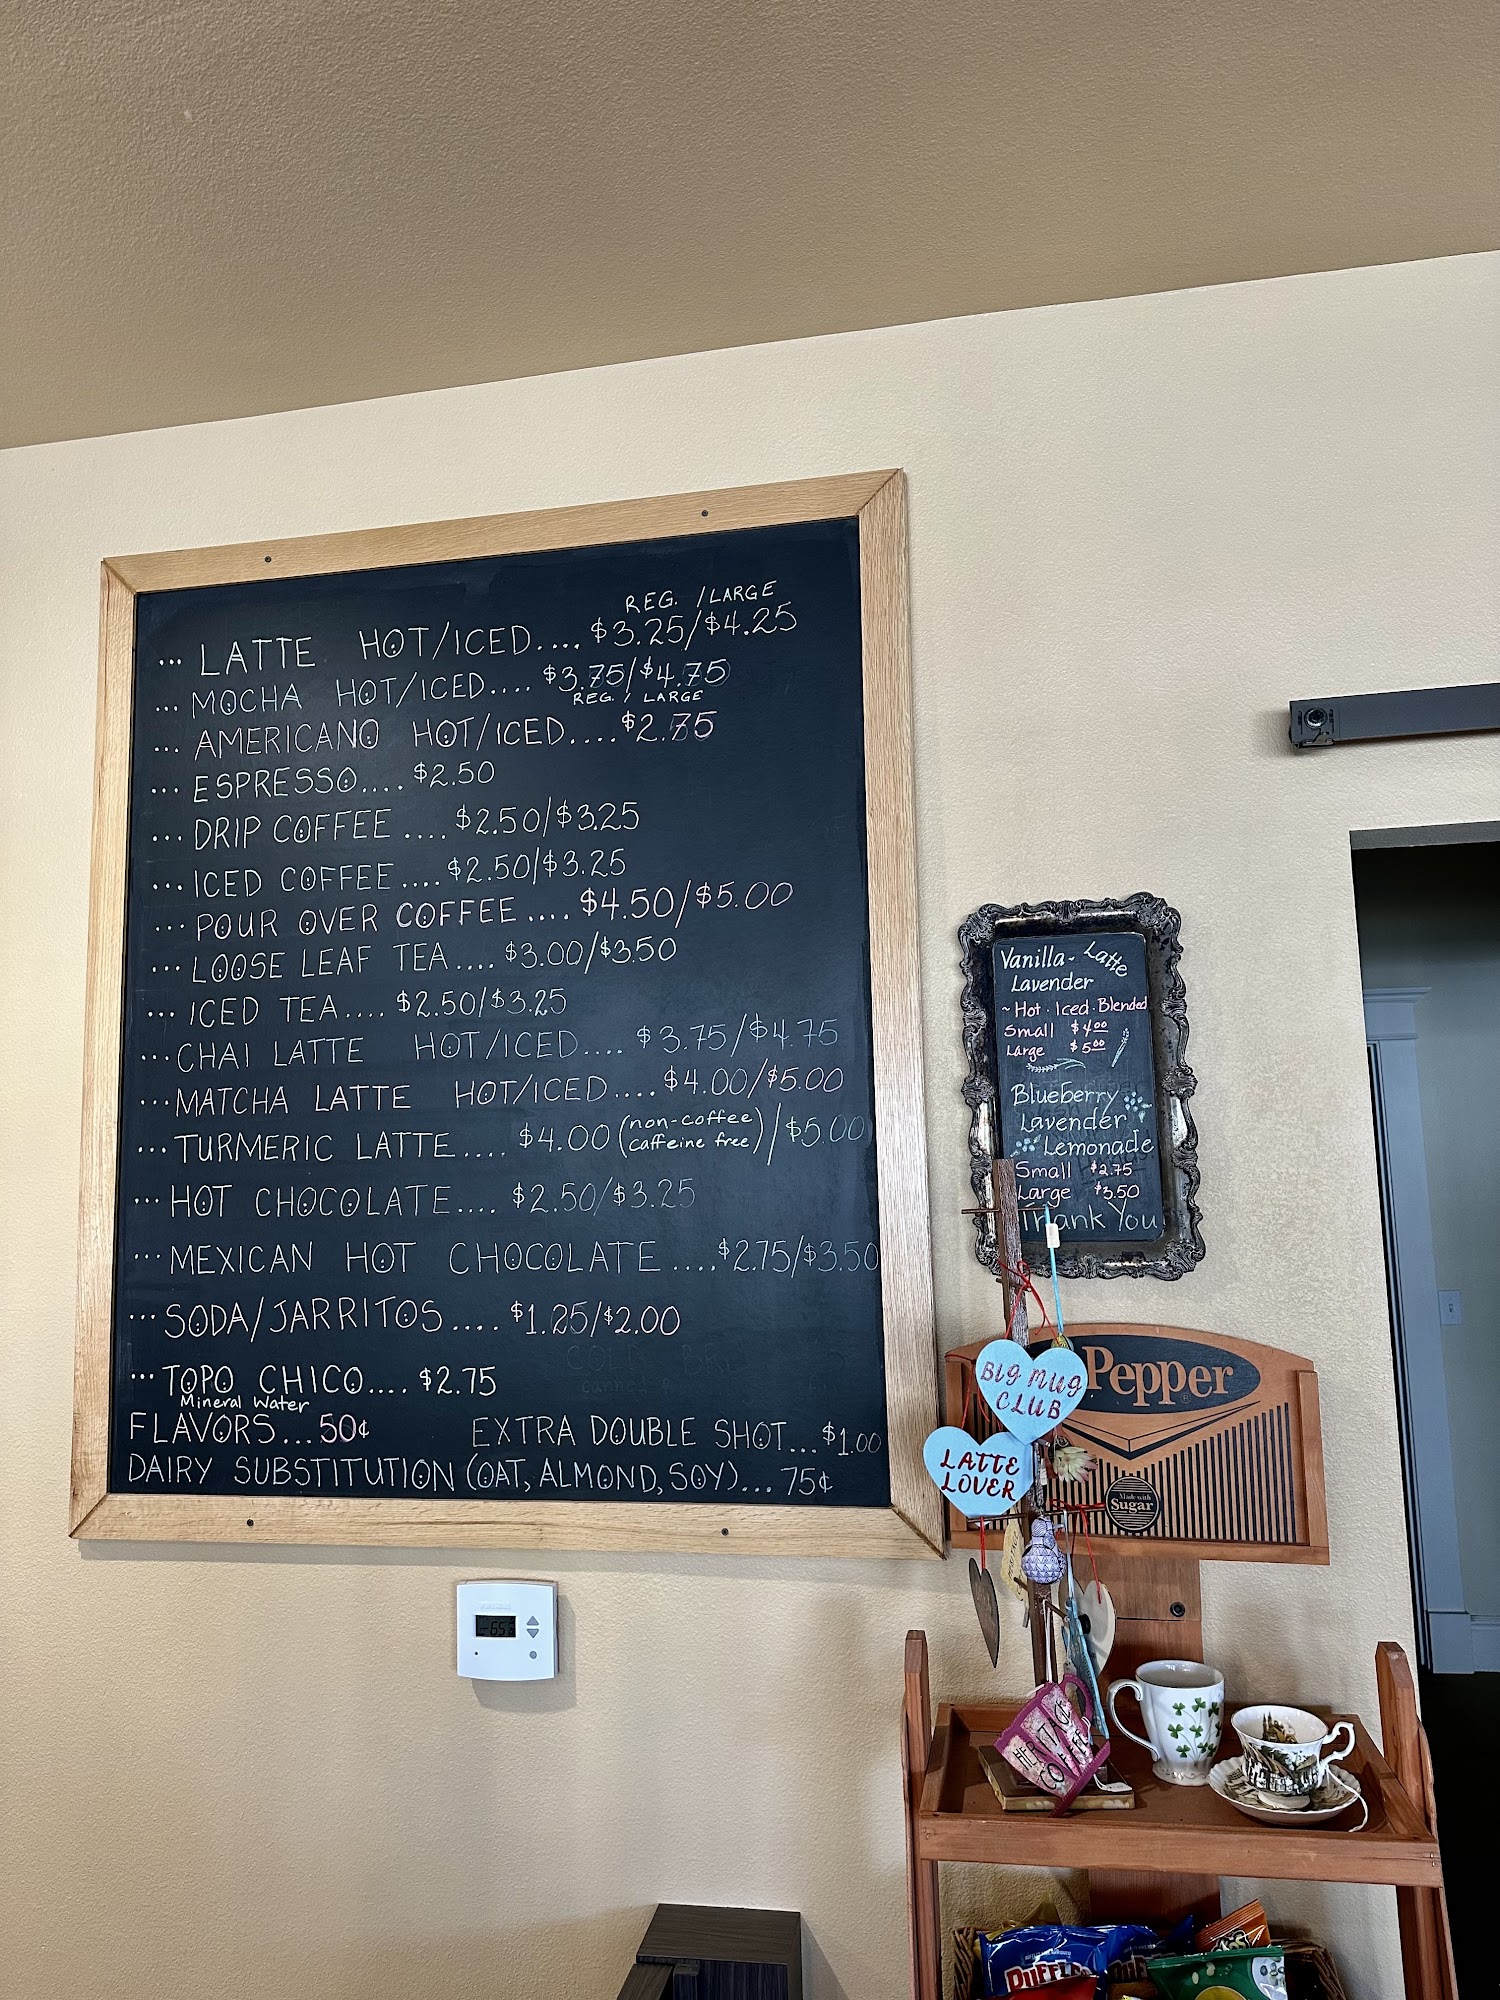 REG. / LARGE
... LATTE HOT/ICED.... $3.25/$4.25
... MOCHA HOT/ICED.... $3.75/$4.75
REG. / LARGE
... AMERICANO HOT/ICED.... $2.75
... ESPRESSO.... $2.50
... DRIP COFFEE .... $2.50/$3.25
... ICED COFFEE .... $2.50/$3.25
... POUR OVER COFFEE .... $4.50/$5.00
... LOOSE LEAF TEA.... $3.00/$3.50
... ICED TEA.... $2.50/$3.25
... CHAI LATTE HOT/ICED.... $3.75/$4.75
... MATCHA LATTE HOT/ICED.... $4.00/$5.00
... TURMERIC LATTE.... $4.00 (non-coffee caffeine free) / $5.00
... HOT CHOCOLATE.... $2.50/$3.25
... MEXICAN HOT CHOCOLATE ....$2.75/$3.50
... SODA/JARRITOS .... $1.25/$2.00
... TOPO CHICO.... $2.75
Mineral Water
FLAVORS...50¢ EXTRA DOUBLE SHOT...$1.00
DAIRY SUBSTITUTION (OAT, ALMOND, SOY)... 75¢
Vanilla- Latte
Lavender
~ Hot · Iced · Blended
Small $4.00
Large $5.00
Blueberry
Lavender
Lemonade
Small $2.75
Large $3.50
Thank You
Pepper
Made with
Sugar
BIG MUG
CLUB
LATTE
LOVER
HERITAGE
COFFEE
RUFFLES